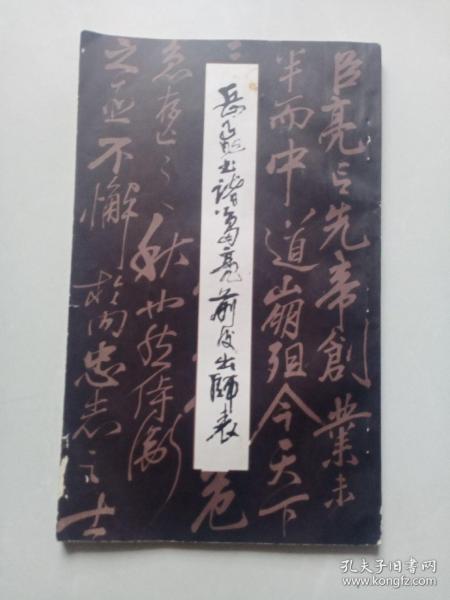 臣亮言先帝創業未
半而中道崩殂今天下
三
危
急存亡之秋也然侍衛
之臣不懈於内忠志之士
岳飛書諸葛亮前後出師表
孔夫子旧书网
www.kongfz.com